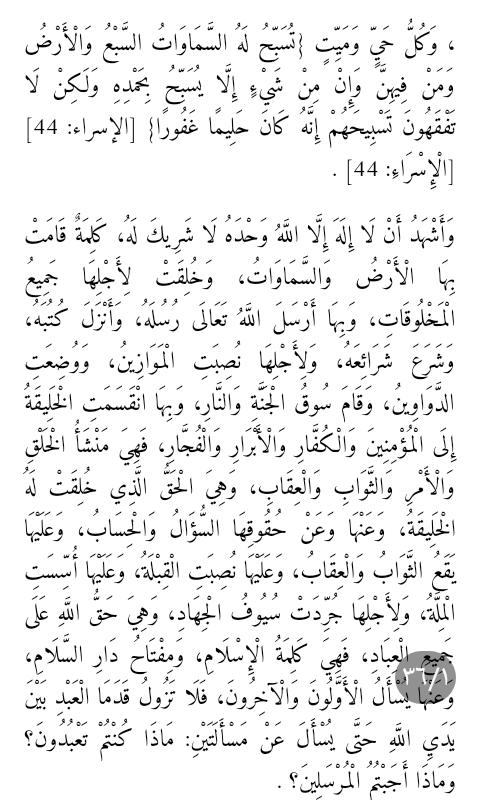 ، وَكُلُّ حَيٍّ وَمَيِّتٍ {تُسَبِّحُ لَهُ السَّمَاوَاتُ السَّبْعُ وَالْأَرْضُ
وَمَنْ فِيهِنَّ وَإِنْ مِنْ شَيْءٍ إِلَّا يُسَبِّحُ بِحَمْدِهِ وَلَكِنْ لَا
تَفْقَهُونَ تَسْبِيحَهُمْ إِنَّهُ كَانَ حَلِيمًا غَفُورًا} [الإسراء: 44]
[الْإِسْرَاءِ: 44] .
وَأَشْهَدُ أَنْ لَا إِلَهَ إِلَّا اللَّهُ وَحْدَهُ لَا شَرِيكَ لَهُ، كَلِمَةٌ قَامَتْ
بِهَا الْأَرْضُ وَالسَّمَاوَاتُ، وَخُلِقَتْ لِأَجْلِهَا جَمِيعُ
الْمَخْلُوقَاتِ، وَبِهَا أَرْسَلَ اللَّهُ تَعَالَى رُسُلَهُ، وَأَنْزَلَ كُتُبَهُ،
وَشَرَعَ شَرَائِعَهُ، وَلِأَجْلِهَا نُصِبَتِ الْمَوَازِينُ، وَوُضِعَتِ
الدَّوَاوِينُ، وَقَامَ سُوقُ الْجَنَّةِ وَالنَّارِ، وَبِهَا انْقَسَمَتِ الْخَلِيقَةُ
إِلَى الْمُؤْمِنِينَ وَالْكُفَّارِ وَالْأَبْرَارِ وَالْفُجَّارِ، فَهِيَ مَنْشَأُ الْخَلْقِ
وَالْأَمْرِ وَالثَّوَابِ وَالْعِقَابِ، وَهِيَ الْحَقُّ الَّذِي خُلِقَتْ لَهُ
الْخَلِيقَةُ، وَعَنْهَا وَعَنْ حُقُوقِهَا السُّؤَالُ وَالْحِسَابُ، وَعَلَيْهَا
يَقَعُ الثَّوَابُ وَالْعِقَابُ، وَعَلَيْهَا نُصِبَتِ الْقِبْلَةُ، وَعَلَيْهَا أُسِّسَتِ
الْمِلَّةُ، وَلِأَجْلِهَا جُرِّدَتْ سُيُوفُ الْجِهَادِ، وَهِيَ حَقُّ اللَّهِ عَلَى
جَمِيعِ الْعِبَادِ، فَهِيَ كَلِمَةُ الْإِسْلَامِ، وَمِفْتَاحُ دَارِ السَّلَامِ،
وَعَنْهَا يُسْأَلُ الْأَوَّلُونَ وَالْآخِرُونَ، فَلَا تَزُولُ قَدَمَا الْعَبْدِ بَيْنَ
يَدَيِ اللَّهِ حَتَّى يُسْأَلَ عَنْ مَسْأَلَتَيْنِ: مَاذَا كُنْتُمْ تَعْبُدُونَ؟
وَمَاذَا أَجَبْتُمُ الْمُرْسَلِينَ؟ .
٣٦/١